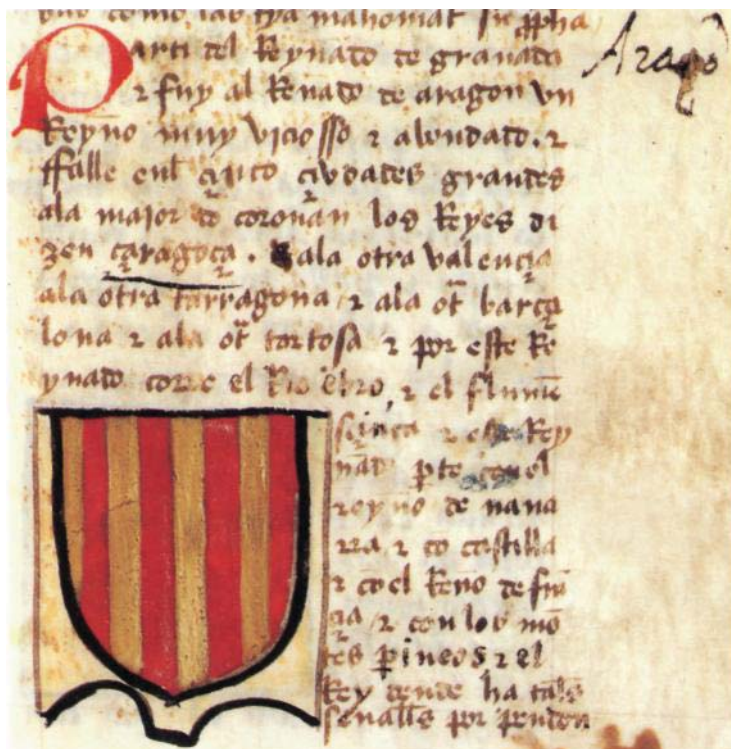 como mahomat
Parti del Reynado de granada Aragõ
r fuy al Renado de aragon vn
Reyno muy viciosso r abondado. r
ffalle enl çinco çiudades grandes
ala maior do coronan los Reyes di
zen çaragoça. Eala otra valençia
ala otra tarragona r ala ot barça
lona r ala ot tortosa r por este Re
ynado corre el Rio ebro, r el flumẽ
r este Rey
nad pte con el
reyno de naua
rra r cõ castilla
r cõel Reno de frã
çia r con los mõ
tes pineos r el
Rey dende ha tales
señales por pendon